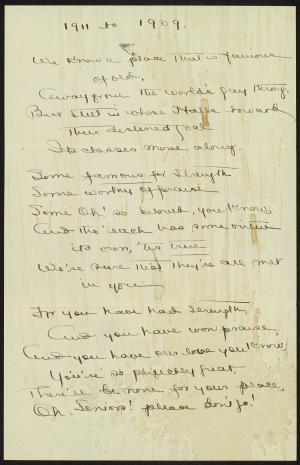 1911 to 1909.
We know a place that is famous
of old,
Away from the world's gay throng.
But still in whose Halls toward
Their destined goal
Its classes move along.
Some famous for Strength
Some worthy of praise
Some Oh! so proud, you know,
And tho' each has some virtue
its own, 'tis true
We're sure that they're all met
in you
For you have had Strength
And you have won praise,
And you have our love you know,
You're so perfectly great
There'll be none for your place,
Oh Seniors! please don't go!